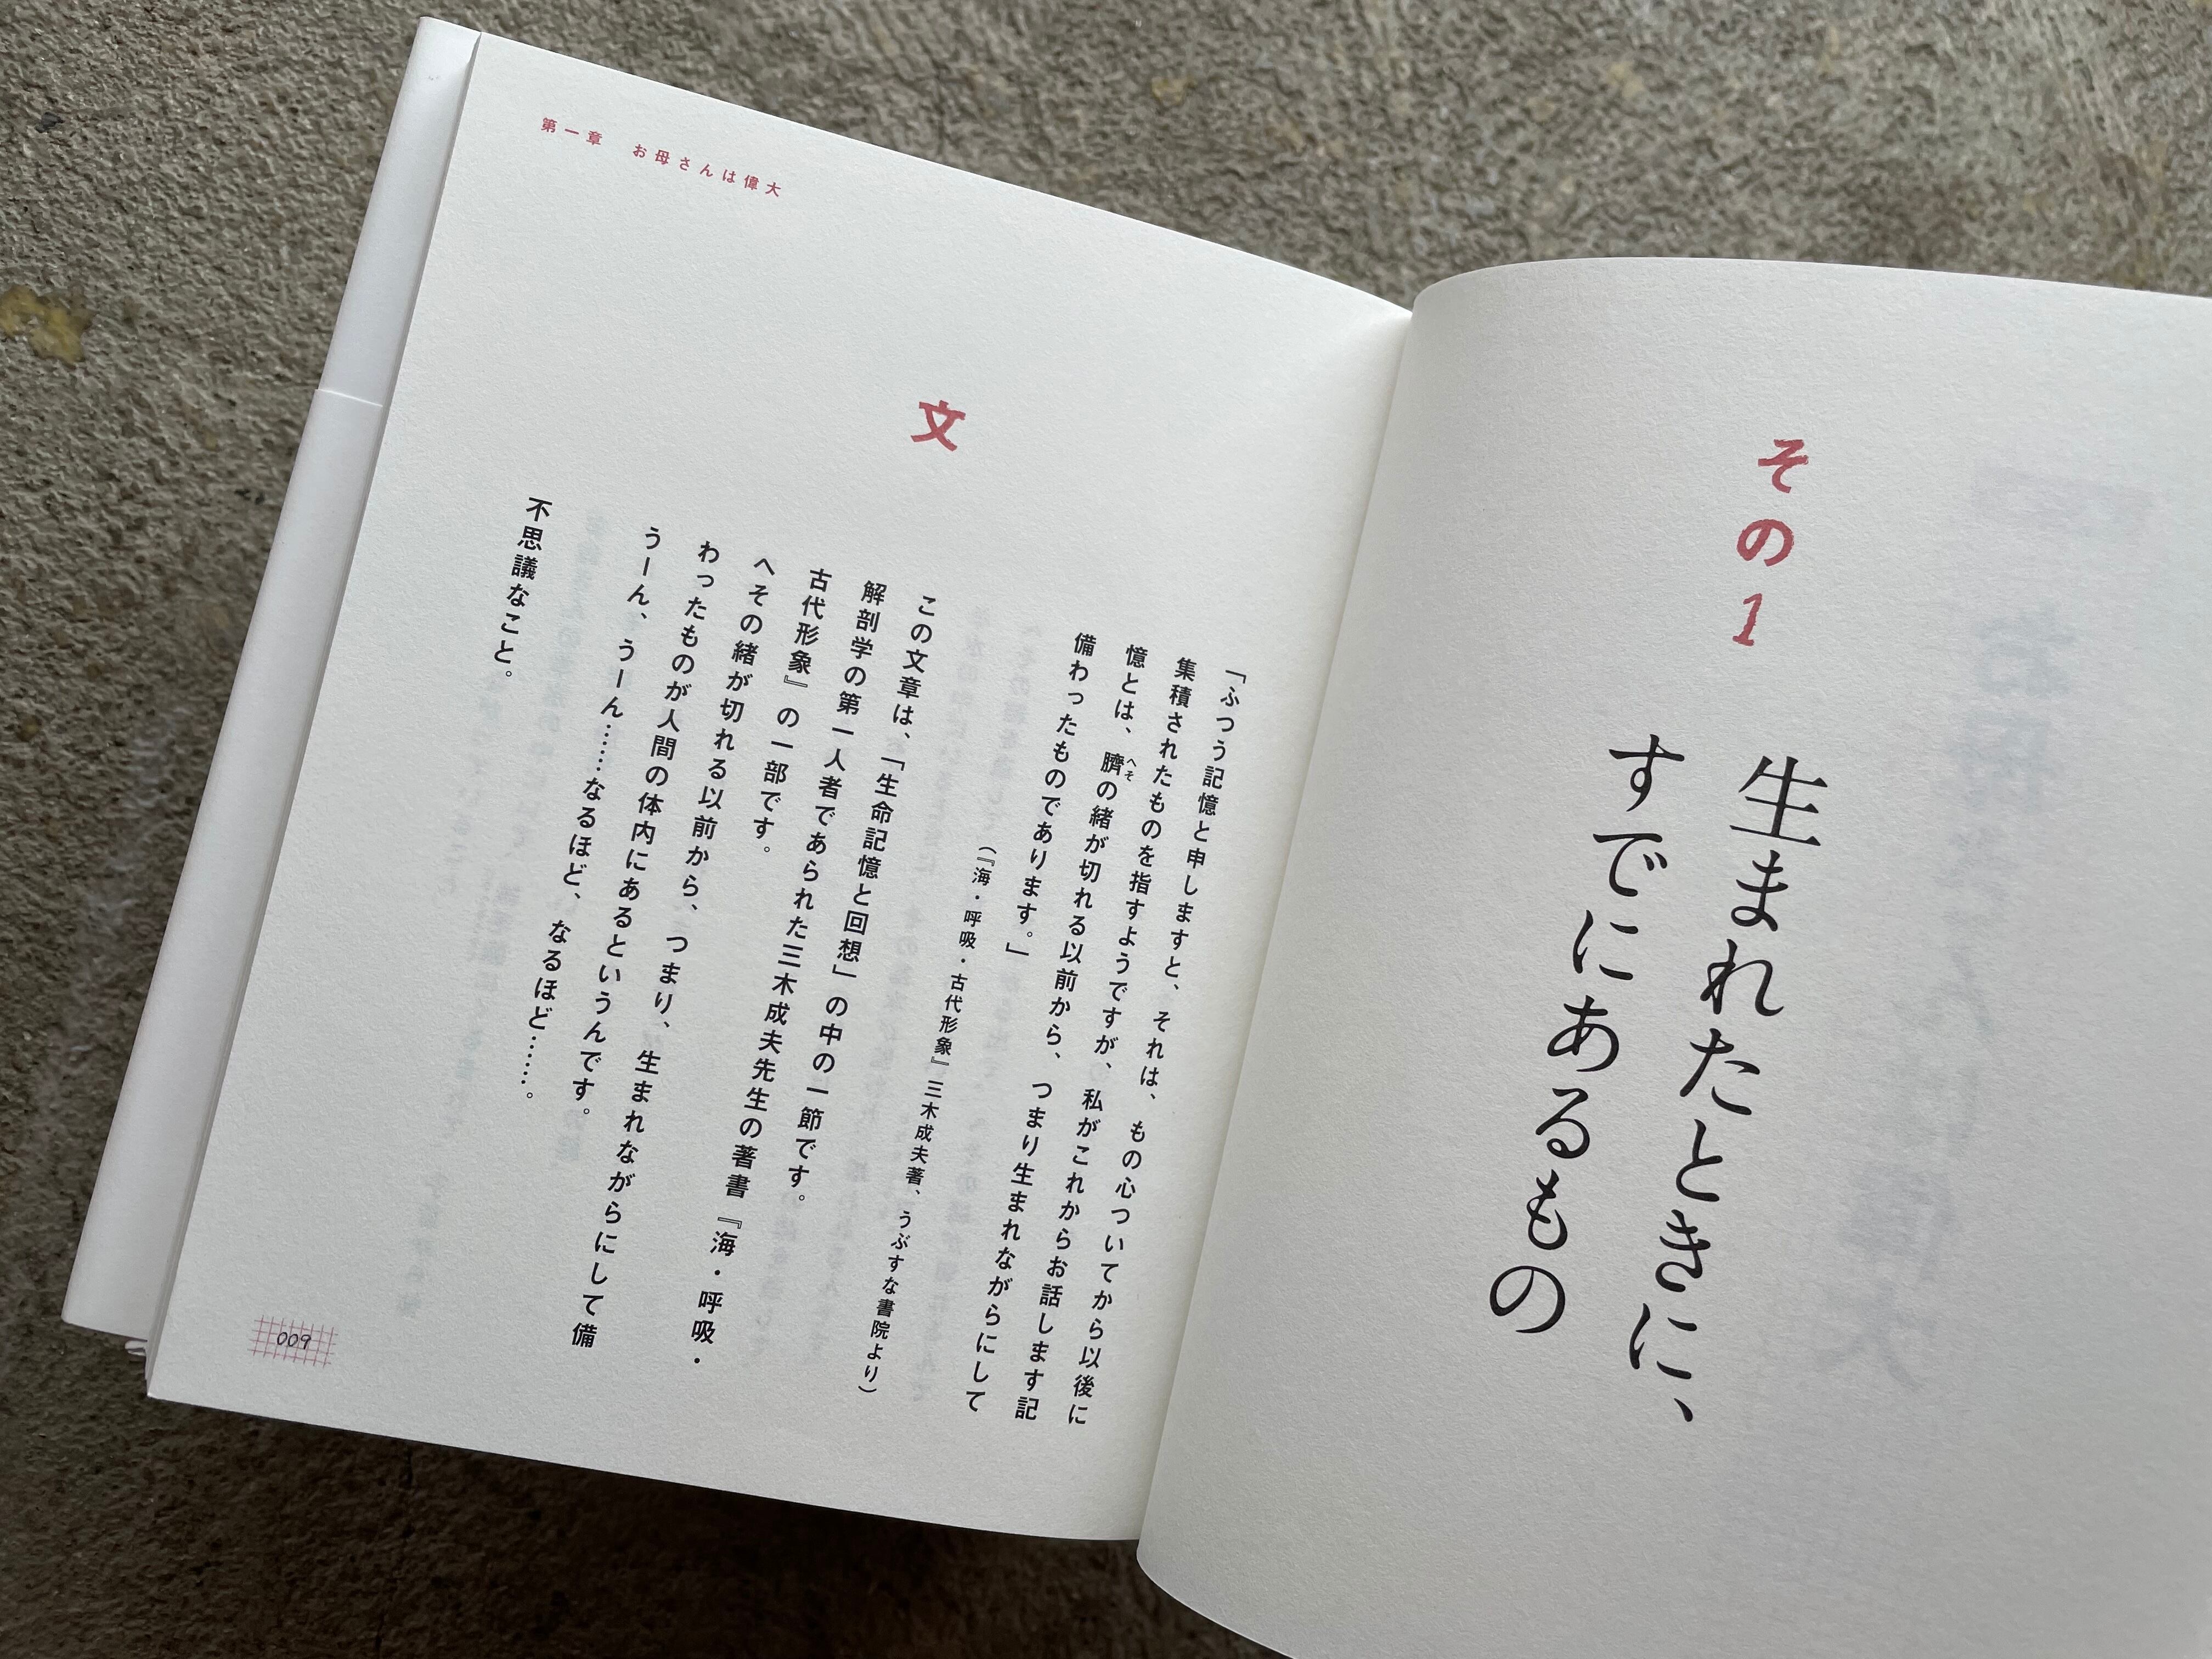 その1
生まれたときに、
すでにあるもの
第一章 お母さんは偉大
文
「ふつう記憶と申しますと、それは、もの心ついてから以後に
集積されたものを指すようですが、私がこれからお話します記
憶とは、臍の緒が切れる以前から、つまり生まれながらにして
へそ
備わったものであります。」
(『海・呼吸・古代形象』三木成夫著、うぶすな書院より)
この文章は、「生命記憶と回想」の中の一節です。
解剖学の第一人者であられた三木成夫先生の著書『海・呼吸・
古代形象』の一部です。
へその緒が切れる以前から、つまり、生まれながらにして備
わったものが人間の体内にあるというんです。
うーん、うーん……なるほど、なるほど……。
不思議なこと。
009